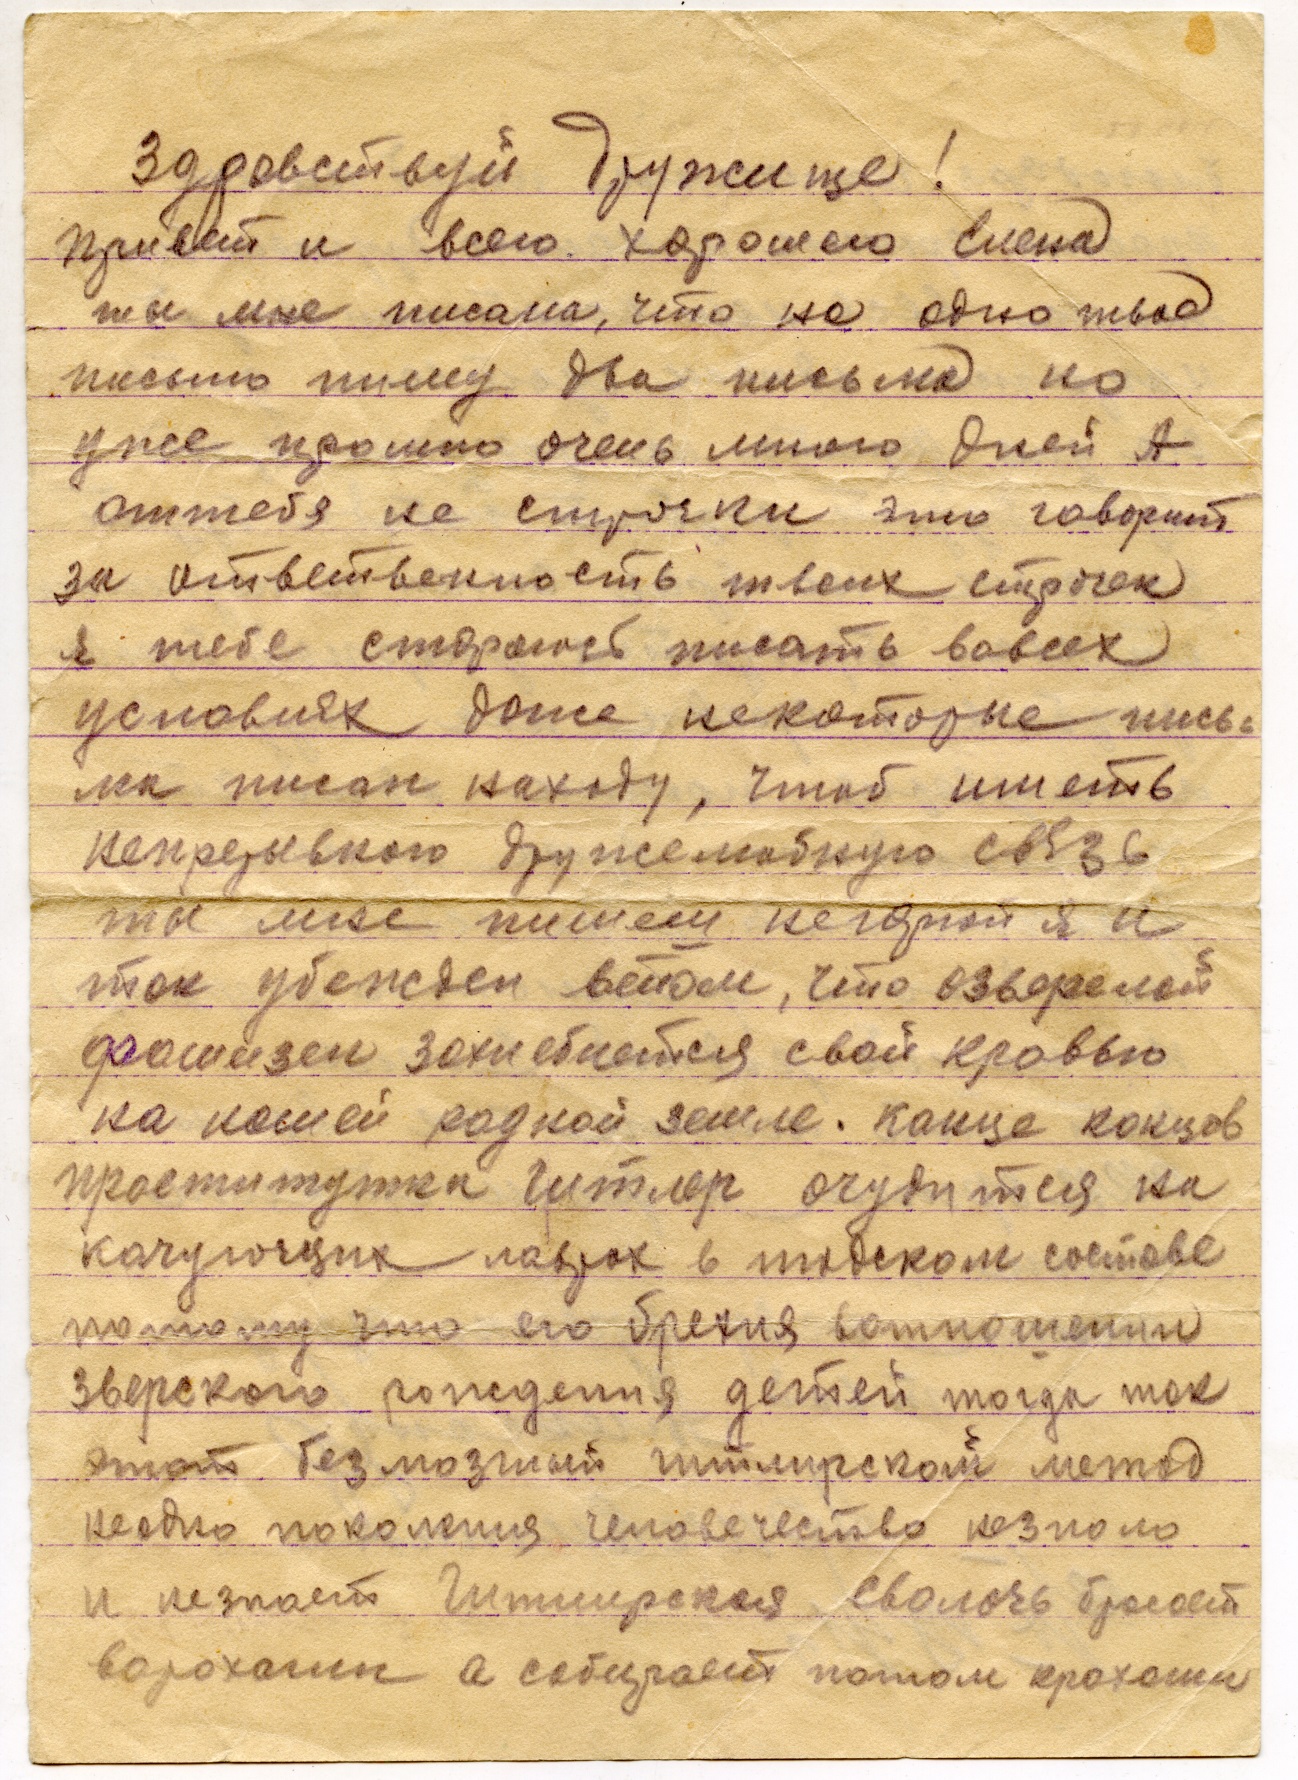 Здравствуй Дружище!
Привет и всего хорошего Елена
ты мне писала, что на одно твое
письмо пишу два письма но
уже прошло очень много дней А
оттебя не строчки это говорит
за ответственность твоих строчек
я тебе стараюсь писать вовсех
условиях даже некоторые пись-
ма писал находу, чтоб иметь
непрерывного дружелюбную связь
ты мне пишеш негорюй я и
так убежден вэтом, что озверелой
фашизен захлебнется свой кровью
на нашей родной земле. Конце концов
проститутка Гитлер очудится на
качующих лаврах в людском составе
потому что его брехня вотношении
зверского рождения детей тогда как
этот безмозглый гитлирской метод
неодно поколения человечество незнало
и незнает Гитлирская сволочь бросает
ворохами а собирает потом крохами